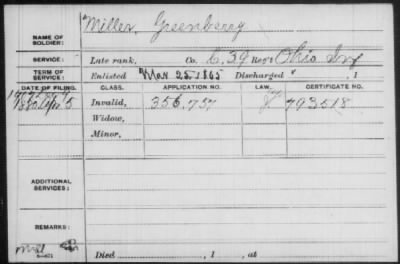 Miller, Greenberry
NAME OF SOLDIER:
SERVICE: Late rank, Co. C. 39 Reg't Ohio Inf
TERM OF SERVICE: Enlisted Mar 25, 1865 Discharged , 1
DATE OF FILING. CLASS. APPLICATION NO. LAW. CERTIFICATE NO.
1880 Apr 5 Invalid, 356,757 793518
Widow,
Minor,
ADDITIONAL SERVICES:
REMARKS:
Died , 1 , at